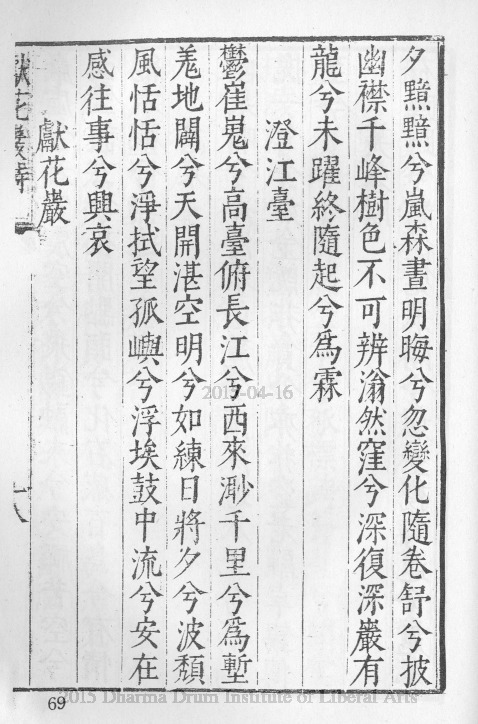 夕黯黯兮嵐森晝明晦兮忽變化隨卷舒兮披
幽襟千峰樹色不可辨滃然窪兮深復深巖有
龍兮未躍終隨起兮爲霖
澄江臺
鬱崔嵬兮高臺俯長江兮西來渺千里兮爲塹
羗地闢兮天開湛空明兮如練日將夕兮波頹
風恬恬兮淨拭望孤嶼兮浮埃鼓中流兮安在
感往事兮興哀
獻花巖
獻花巖
69
2015-04-16
2015 Dharma Drum Institute of Liberal Arts